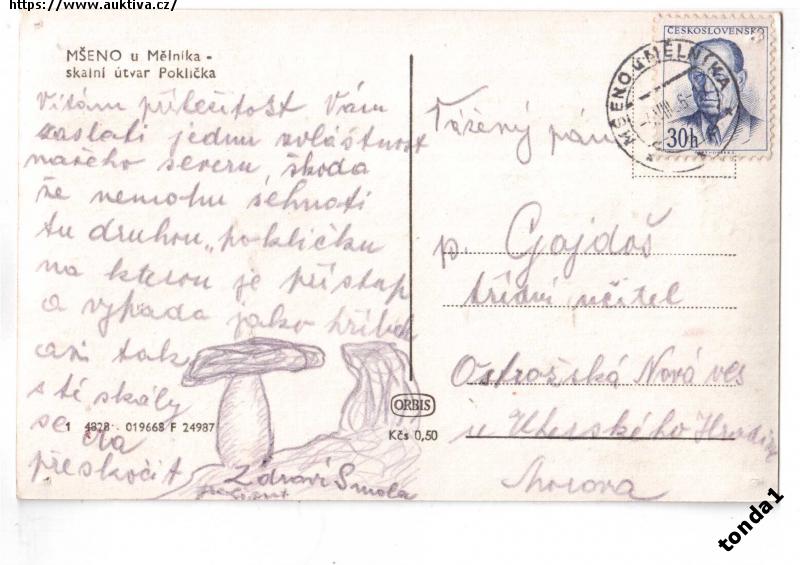 https://www.auktiva.cz/
MŠENO u Mělníka -
skalní útvar Poklička
Vítám příležitost Vám
zaslati jednu zvláštnost
našeho severu, škoda
že nemohu sehnati
tu druhou „pokličku
na kterou je přístup
a vypadá jako hříbek
asi tak
s té skály
se dá
přeskočit
Zdraví Smola
1 4828 019668 F 24987
ORBIS
Kčs 0,50
ČESKOSLOVENSKO
30h
MŠENO u MĚLNÍKA
Vážený pán
p. Gajdoš
třídní učitel
Ostrožská Nová ves
u Uherského Hradiště
Morava
tonda1